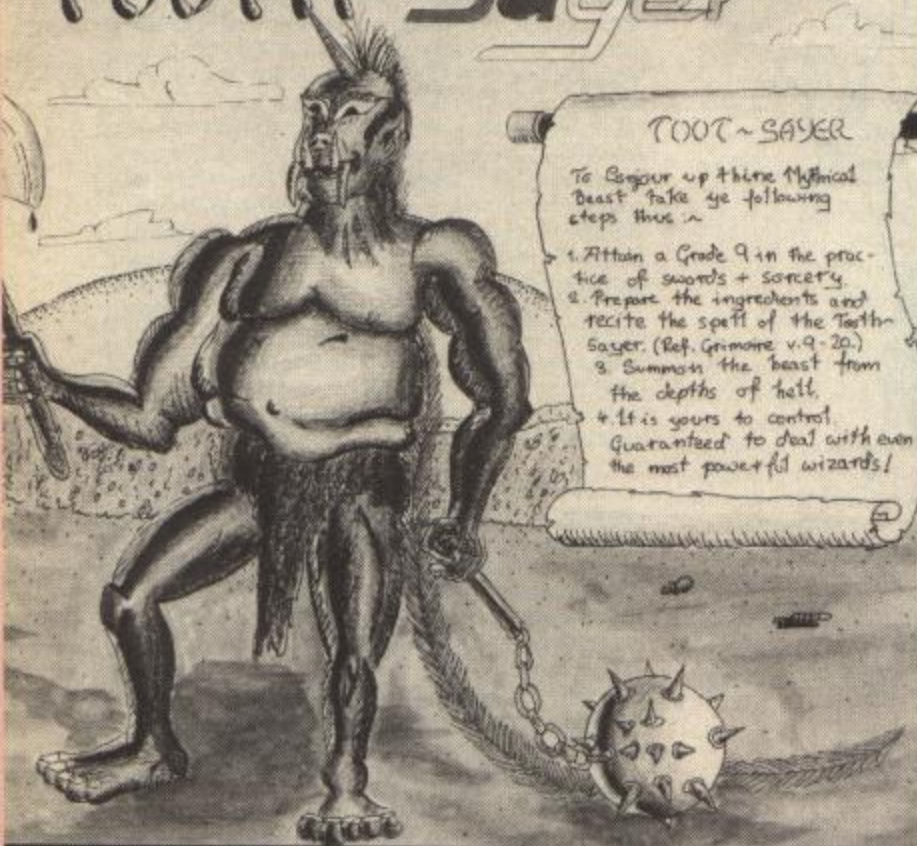 TOOTH Sayer
TOOT~SAYER
To Conjour up thine Mythical
Beast take ye following
steps thus :~
1. Attain a Grade 9 in the prac-
tice of swords + sorcery.
2. Prepare the ingredients and
recite the spell of the Tooth-
Sayer. (Ref. Grimoire v.9-20.)
3. Summon the beast from
the depths of hell.
4. It is yours to control.
Guaranteed to deal with even
the most powerful wizards!